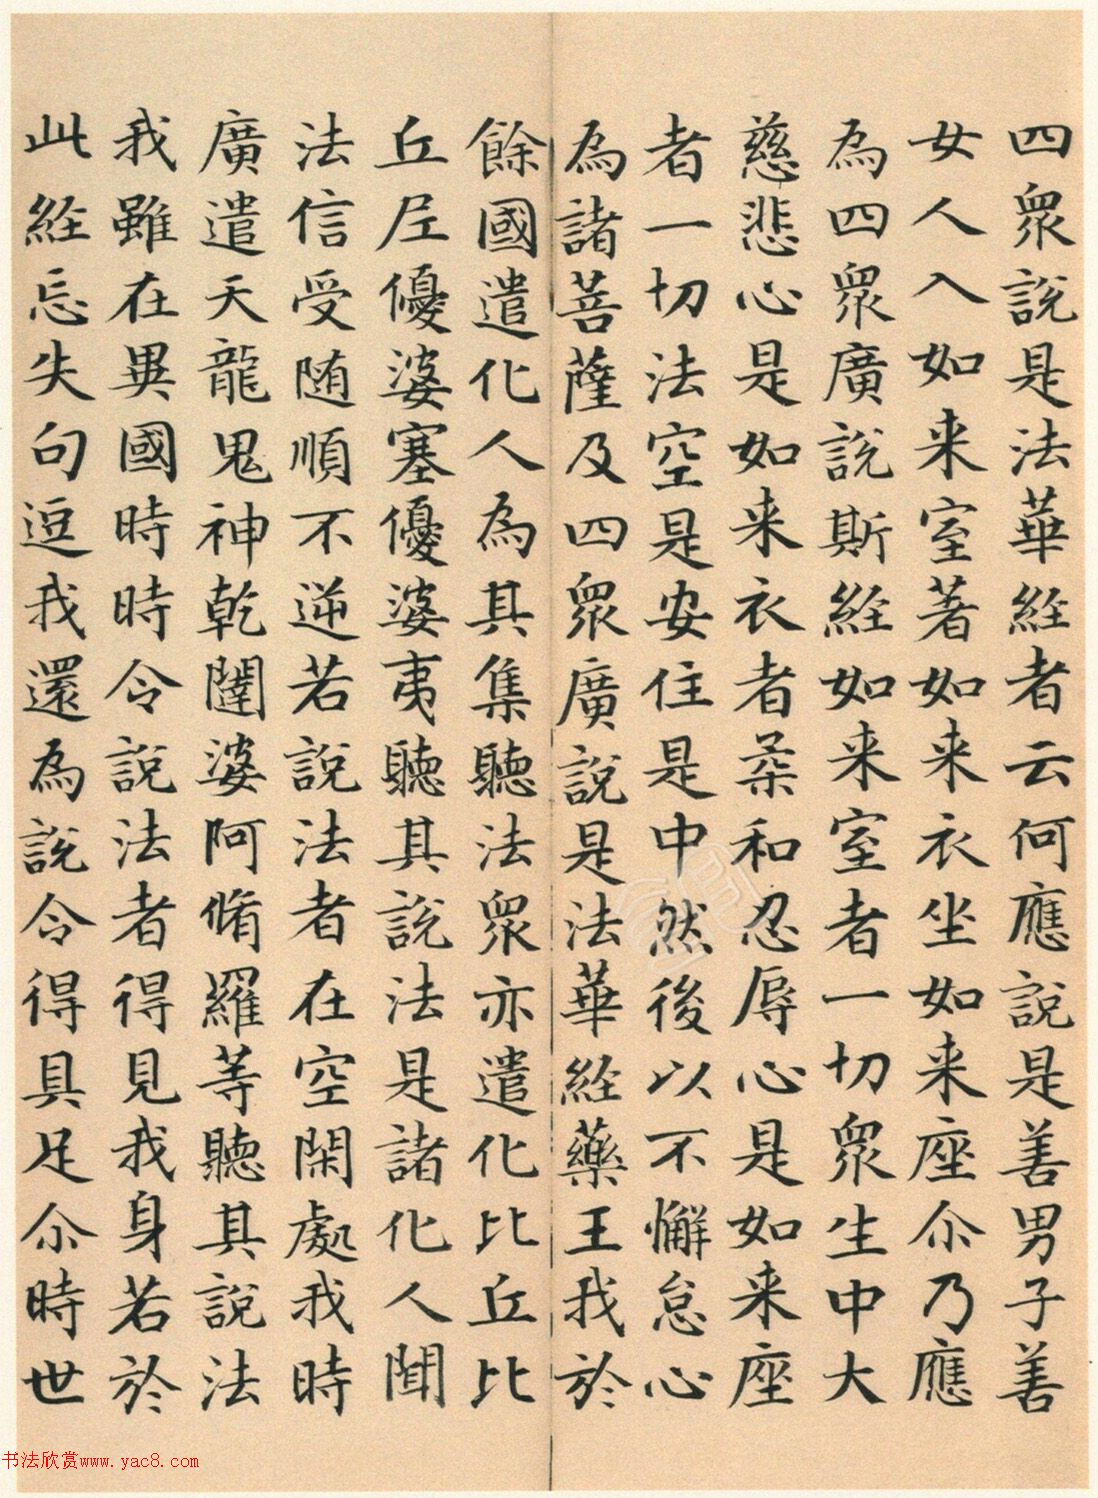 四眾說是法華經者云何應說是善男子善
女人入如来室著如来衣坐如来座尒乃應
為四眾廣說斯經如来室者一切眾生中大
慈悲心是如来衣者柔和忍辱心是如来座
者一切法空是安住是中然後以不懈怠心
為諸菩薩及四眾廣說是法華經藥王我於
餘國遣化人為其集聽法眾亦遣化比丘比
丘尼優婆塞優婆夷聽其說法是諸化人聞
法信受随順不逆若說法者在空閑處我時
廣遣天龍鬼神乾闥婆阿脩羅等聽其說法
我雖在異國時時令說法者得見我身若於
此經忘失句逗我還為說令得具足尒時世
书法欣赏www.yac8.com